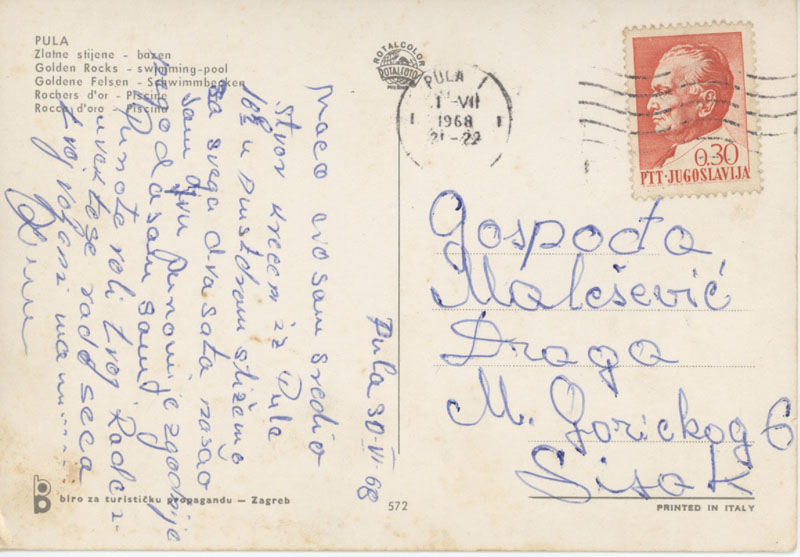 PULA
Zlatne stijene - bazen
Golden Rocks - swimming-pool
Goldene Felsen - Schwimmbecken
Rochers d'or - Piscine
Rocca d'oro - Piscine
ROTALCOLOR
ROTALFOTO
PULA
1 VII
1968
21-22
0.30
PTT·JUGOSLAVIJA
Pula 30-VI-68
sam sredio
stvar krećem iz Pule
stižemo
za svega dva sata našao
sam
da sam sam
Puno te voli tvoj
uvek te se rado seća
tvoj
Gospođa
Malešević
Draga
M. Goričkog 6
Sisak
biro za turističku propagandu — Zagreb
572
PRINTED IN ITALY